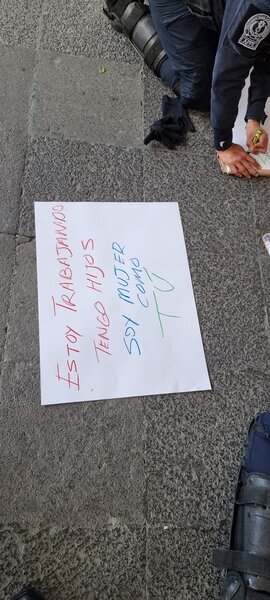 ESTOY TRABAJANDO
TENGO HIJOS
SOY MUJER
COMO
TÚ